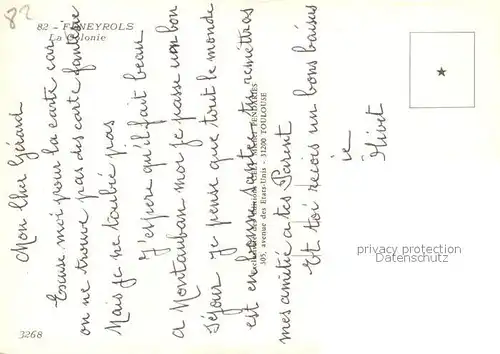 82
82 - FENEYROLS
La Colonie
Mon Cher Gérard
Excuse moi pour la carte car
on ne trouve pas des carte fantésie
Mais je ne t'oublié pas
J'espere qu'il fait beau
a Montauban moi je passe un bon
séjour je pense que tout le monde
est en bonne santer tu remettras
mes amitié a tes Parent
Et toi reçois un bons baises
305, avenue des États-Unis - 31200 TOULOUSE
privacy protection
Datenschutz
3268